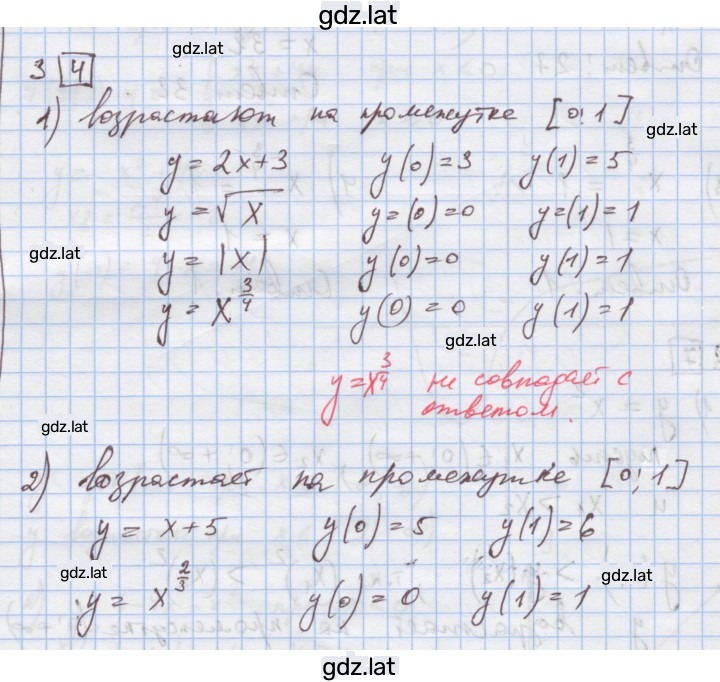 gdz.lat
gdz.lat
3 4
1) возрастают на промежутке [0; 1]
gdz.lat
y = 2x+3 y(0)=3 y(1)=5
y = √x y=(0)=0 y=(1)=1
gdz.lat
y = |x| y(0)=0 y(1)=1
y = x^{3/4} y(0)=0 y(1)=1
gdz.lat
y=x^{3/4} не совпадает с
ответом.
gdz.lat
2) возрастает на промежутке [0; 1]
y = x+5 y(0)=5 y(1)=6
gdz.lat gdz.lat
y = x^{2/3} y(0)=0 y(1)=1
gdz.lat